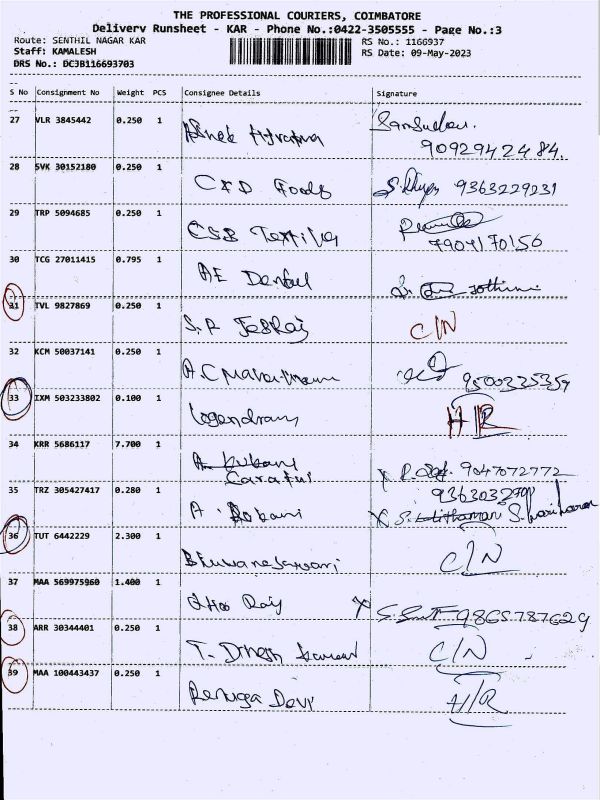 THE PROFESSIONAL COURIERS, COIMBATORE
Delivery Runsheet - KAR - Phone No.:0422-3505555 - Page No.:3
Route: SENTHIL NAGAR KAR RS No.: 1166937
Staff: KAMALESH RS Date: 09-May-2023
DRS No.: DC3B116693703
S No Consignment No Weight PCS Consignee Details Signature
27 VLR 3845442 0.250 1
9092942484.
28 SVK 30152180 0.250 1 Foods 9363229231
29 TRP 5094685 0.250 1 CSB
7904170156
30 TCG 27011415 0.795 1 AE Dental
31 TVL 9827869 0.250 1 S.P C/N
32 KCM 50037141 0.250 1 A.C
9500325359
33 IXM 503233802 0.100 1 H/R
34 KRR 5686117 7.700 1 9047072772
35 TRZ 305427417 0.280 1 A.
36 TUT 6442229 2.300 1 Bhuwaneswari C/N
37 MAA 569975960 1.400 1 9865787629
38 ARR 30344401 0.250 1 T. Dinesh C/N
39 MAA 100443437 0.250 1 Renuga Devi H/R